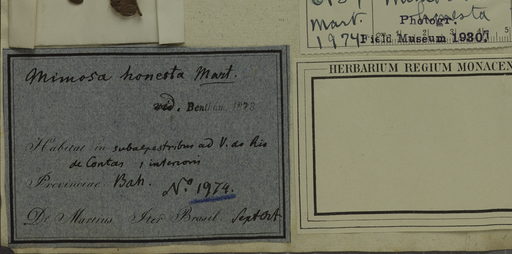 Mimosa honesta Mart.
vid. Bentham 1873
Habitat in subalpestribus ad V. do Rio
de Contas, interioris
Provinciae Bah.
No. 1974.
De Martius Iter Brasil. Sept Oct
Mart.
1974
Photogr.
Field Museum 1930.
HERBARIUM REGIUM MONACEN